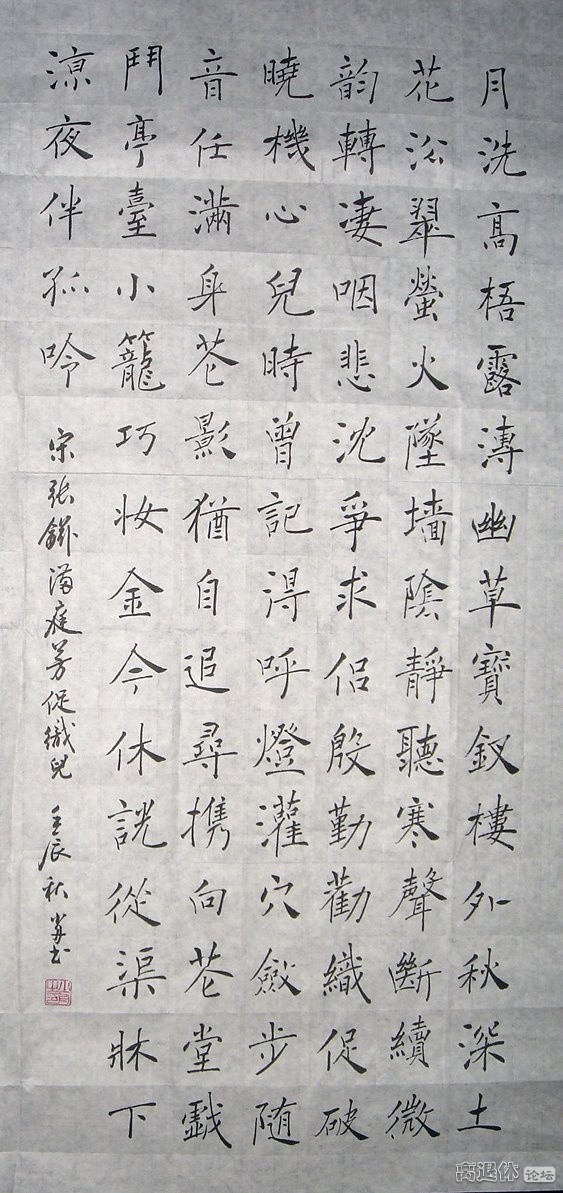 月洗高梧露漙幽草寶釵樓外秋深土
花沿翠螢火墜墙陰靜聽寒聲斷續微
韵轉凄咽悲沈爭求侣殷勤勸織促破
曉機心兒時曾記淂呼燈灌穴斂步随
音任滿身花影猶自追尋携向花堂戲
鬥亭臺小籠巧妆金今休説從渠牀下
涼夜伴孤吟
宋張鎡滿庭芳促織兒 壬辰秋 书
离退休论坛